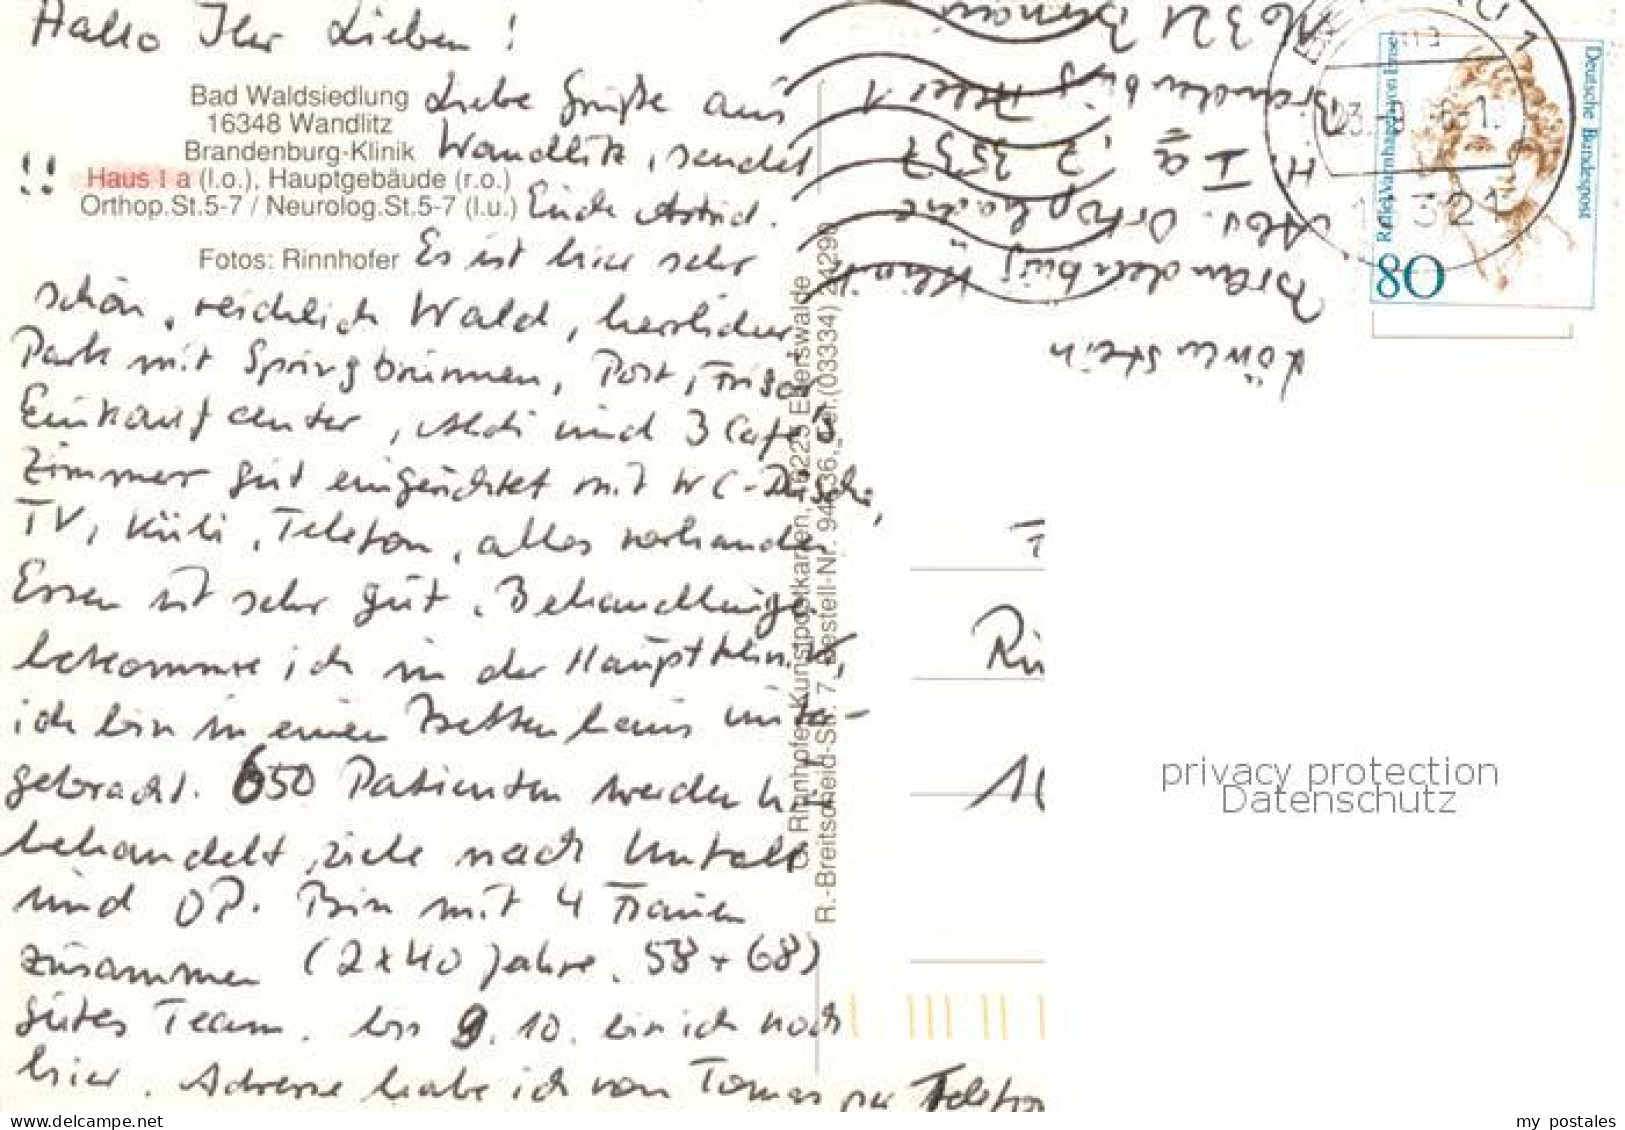 Hallo Ihr Lieben!
Bad Waldsiedlung
16348 Wandlitz
Brandenburg-Klinik
!! Haus I a (l.o.), Hauptgebäude (r.o.)
Orthop.St.5-7 / Neurolog.St.5-7 (l.u.)
Fotos: Rinnhofer
Liebe Grüße aus
Wandlitz, sendet
Euch Astrid.
Es ist hier sehr
schön, reichlich Wald, herrlicher
Park mit Springbrunnen, Post, Frisör
Einkaufcenter, Aldi und 3 Cafe's
Zimmer gut eingerichtet mit WC-Dusche,
TV, Kühli, Telefon, alles vorhanden
Essen ist sehr gut. Behandlunge
bekomme ich in der Hauptklinik,
ich bin in einen Bettenhaus unter-
gebracht. 650 Patienten werden hi
behandelt, viele nach Unfall
und OP. Bin mit 4 Frauen
zusammen (2x40 Jahre, 58 + 68)
gutes Team. bis 9.10. bin ich noch
hier. Adresse habe ich von Tomas per Telefon
G. Rinnhofer Kunstpostkarten, 16225 Eberswalde
R.-Breitscheid-Str. 7, Bestell-Nr. 94 36, Tel.(03334) 24290
Löwenstein
Brandenburg Klinik
Abt. Orthopädie
H. I a, Z 3537
Brandenburg Allee 1
16321 Bernau
Deutsche Bundespost
Rahel Varnhagen von Ense
80
1
16321
Ri
privacy protection
Datenschutz
delcampe.net
my_postales